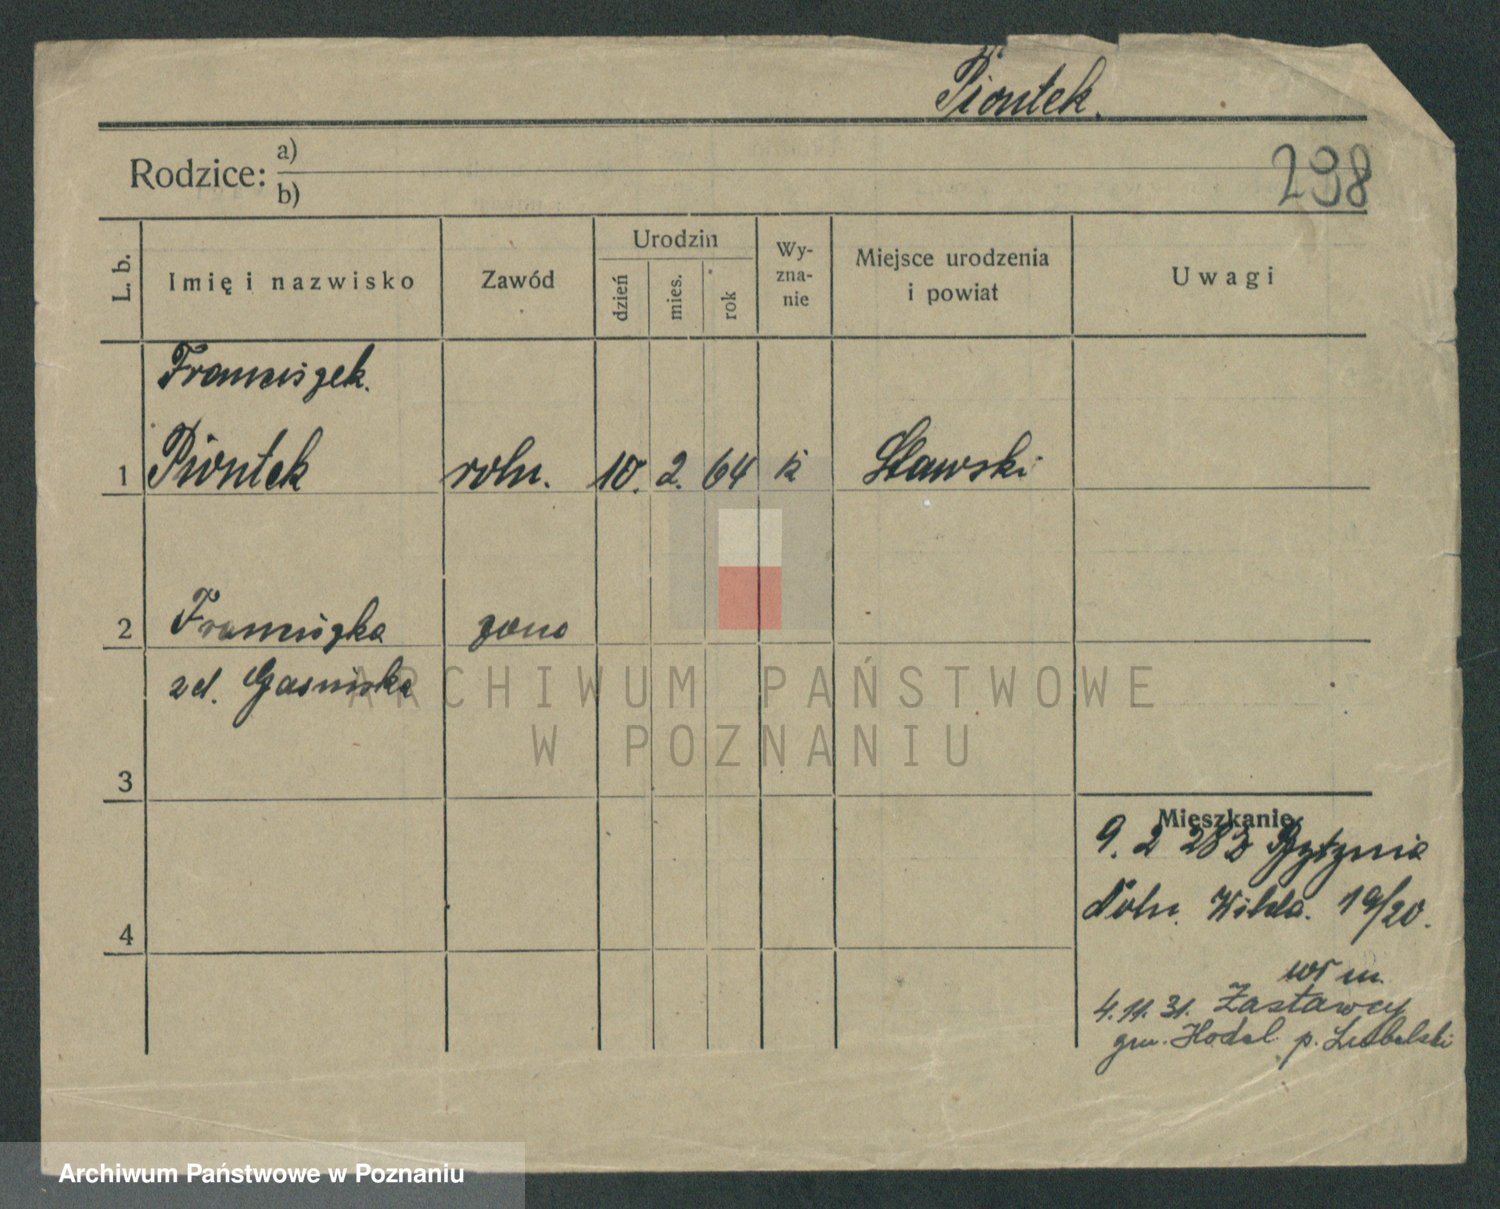 Piontek.
Rodzice: a)
b)
298
L. b.
Imię i nazwisko
Zawód
Urodzin
dzień
mies.
rok
Wy-
zna-
nie
Miejsce urodzenia
i powiat
Uwagi
Franciszek.
1 Piontek roln. 10. 2. 64 k Sławski
2 Franciszka żona
zd.
3
Mieszkanie:
9. 2 28
4 Wilda. 19/20.
wr m.
4.11.31. Zastawcy
gm. Hodel p. Lubelski
ARCHIWUM PAŃSTWOWE
W POZNANIU
Archiwum Państwowe w Poznaniu